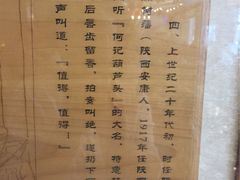 四、上世纪二十年代初，时任
（陕西安康人，1917年任院
听『何记葫芦头』的大名，特意
后唇齿留香，拍案叫绝，遂扔下
声叫道：『值得，值得！』